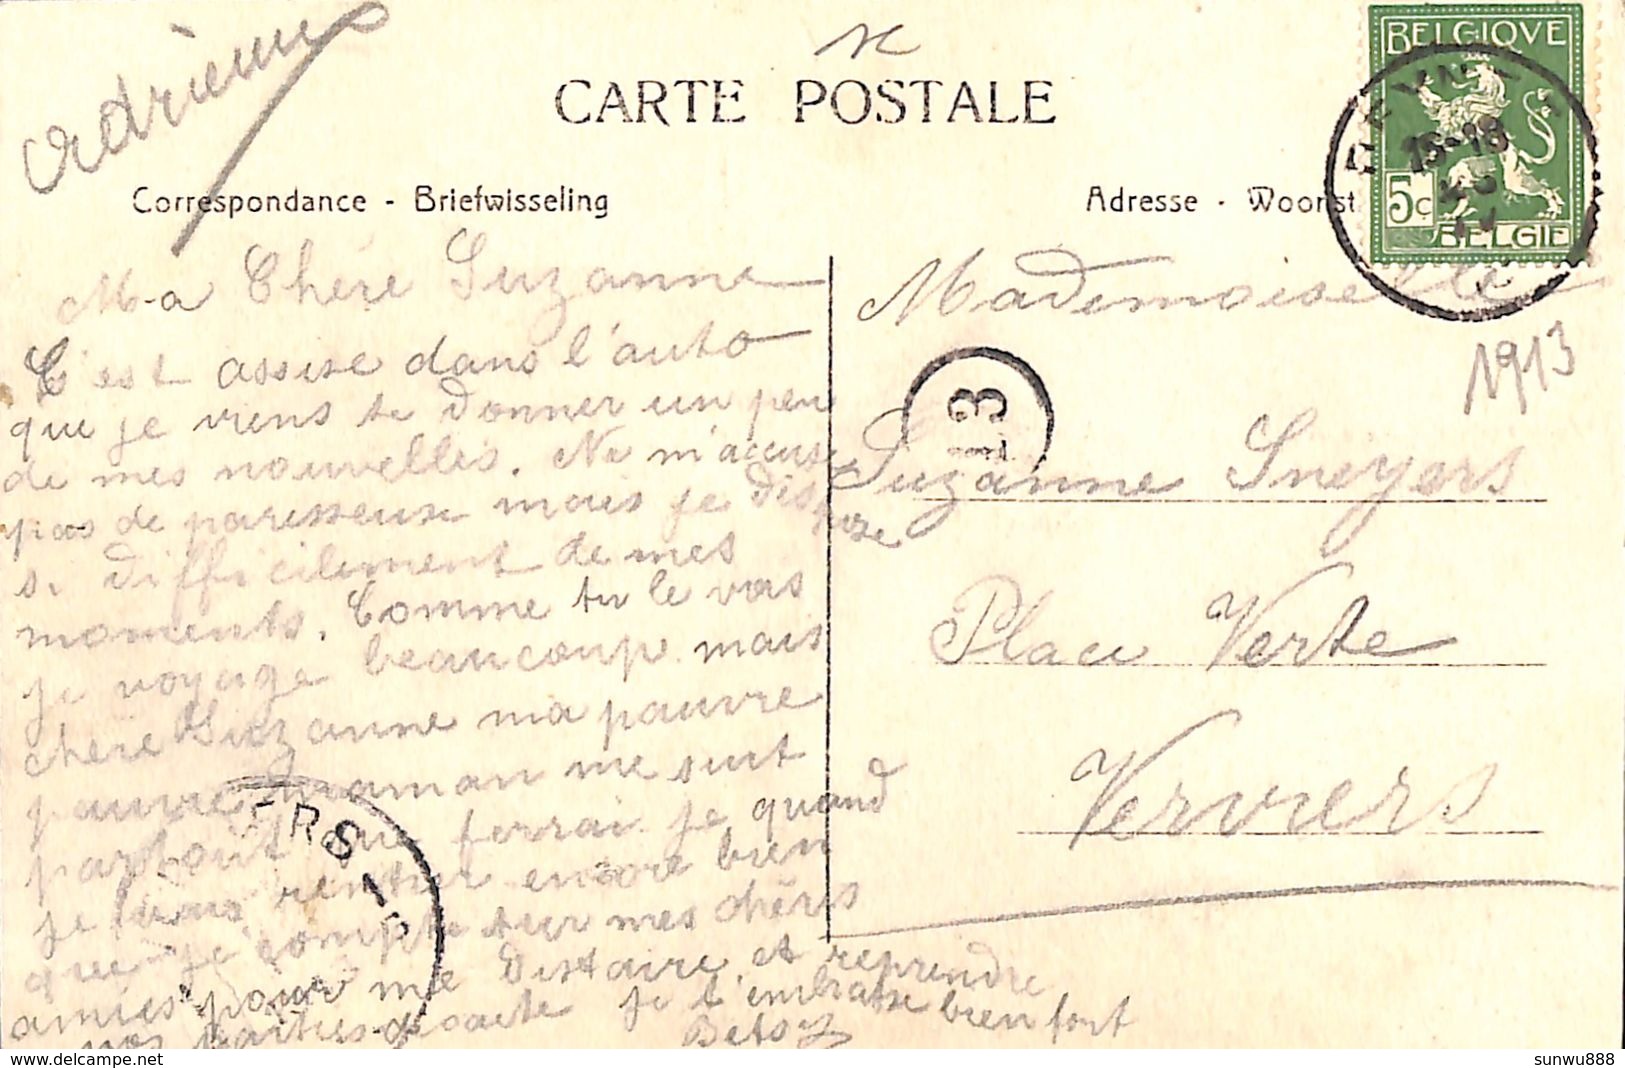 Adrienne
CARTE POSTALE
Correspondance - Briefwisseling
Adresse - Woonst
BELGIQUE
5c
BELGIË
15-18
1913
13
Ma Chère Suzanne
C'est assise dans l'auto
que je viens te donner un peu
de mes nouvelles. Ne m'accuse
pas de paresseuse mais je dispose
si difficilement de mes
moments. Comme tu le vois
je voyage beaucoup mais
chère Suzanne ma pauvre
pauvre maman me suit
partout que ferrai je quand
je rentrer encore bien
que je compte sur mes chères
amies pour me distaire, et reprendre
nos parties je t'embrasse bien fort
Betsy
Mademoiselle
Suzanne Sneyers
Place Verte
Verviers
ERS
sunwu888
delcampe.net